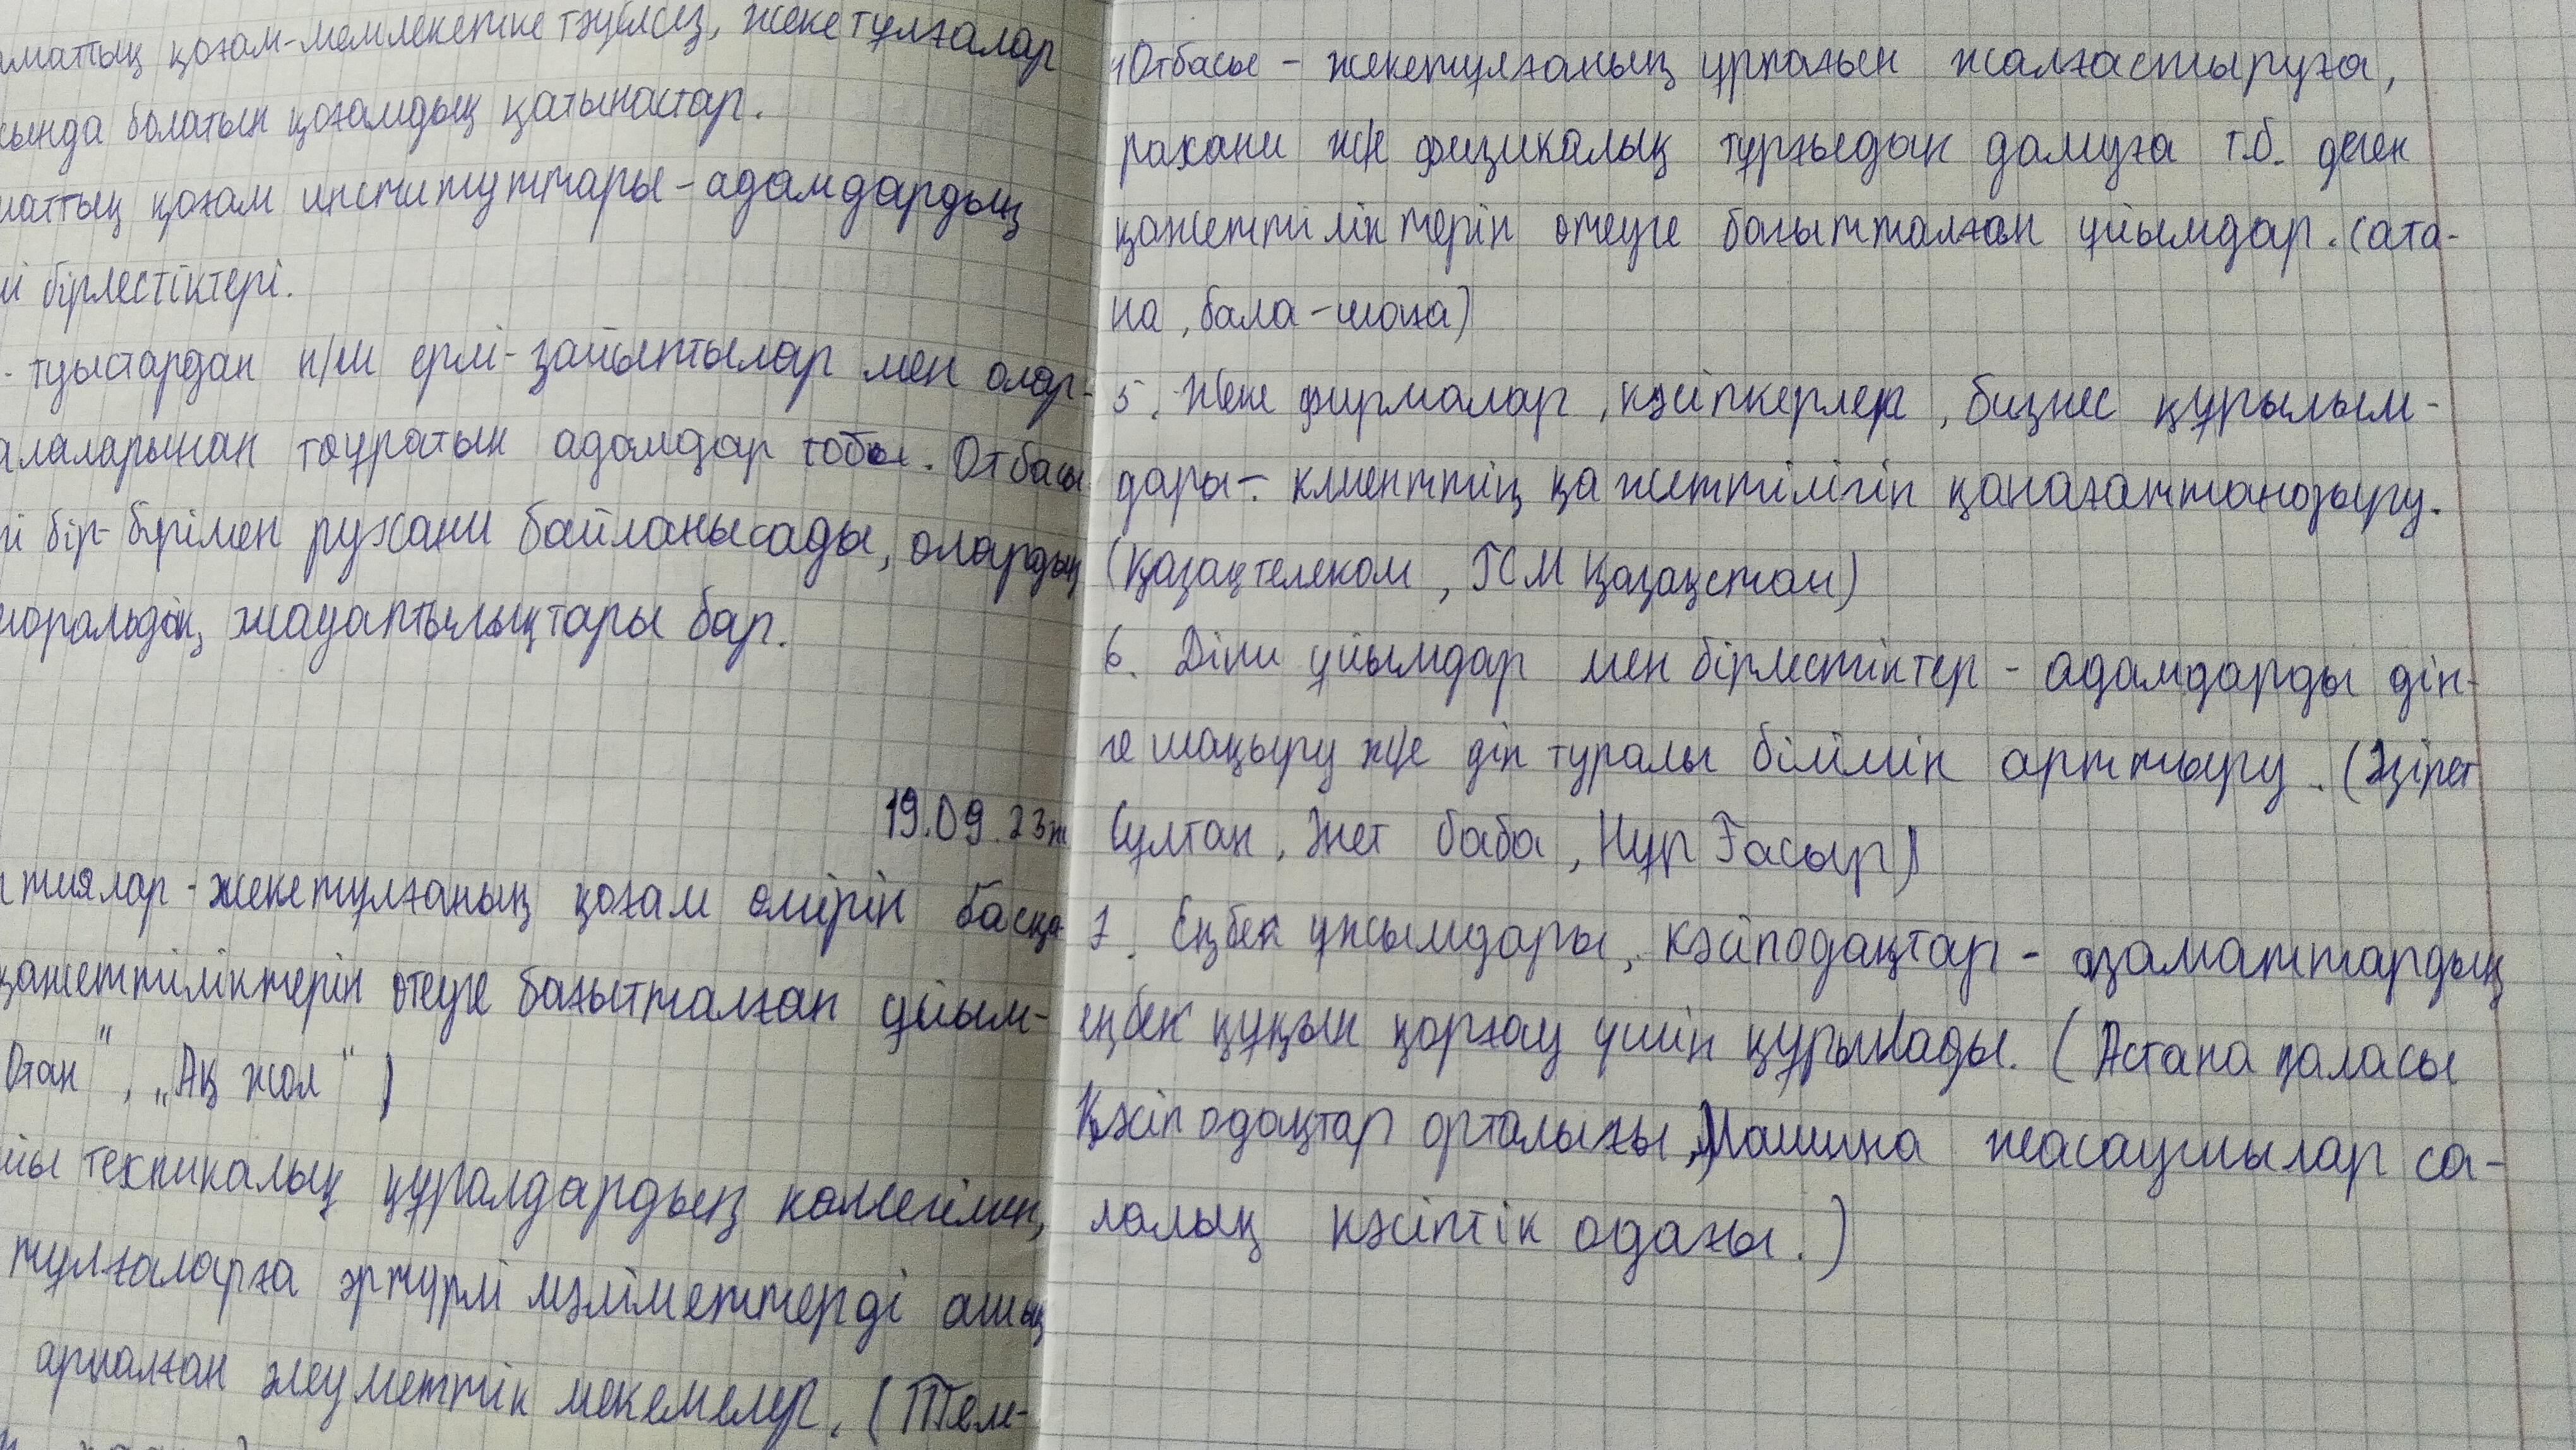 аматтық қоғам-мемлекетке тәуелсіз, жеке тұлғалар
сында болатын қоғамдық қатынастар.
маттық қоғам институттары-адамдардың
і бірлестіктері.
- туыстардан н/ше ерлі-зайыптылар мен олар-
алаларынан тоуратын адамдар тобы. Отбасы
і бір-бірімен рухани байланысады, олардың
моральдық жауаптылықтары бар.
19.09.23ж
тиялар-жекетұлғаның қоғам өмірін басқа-
қажеттіліктерін өтеуге бағытталған ұйым-
Отан", „Ақ жол")
йы техникалық құралдардың көмегімен,
тұлғаларға әртүрлі мәліметтерді ашық
арналған әлеуметтік мекемелер. (Теле-
4Отбасы - жекетулғаның ұрпағын жалғастыруға,
рахани ж/е физикалық тұрғыдан дамуға т.б. деген
қажеттіліктерін өтеуге бағытталған ұйымдар. (ата-
на, бала-шаға)
5. Жеке фирмалар, кәсіпкерлер, бизнес құрылым-
дары-. клиенттің қажеттілігін қанағаттандыру.
(Қазақтелеком, ГСМ Қазақстан)
6. Діни ұйымдар мен бірлестіктер - адамдарды дін-
ге шақыру ж/е дін туралы білімін арттыру. (Әзірет
Сұлтан, Жет баба, Нұр Ғасыр)
7. Еңбек ұжымдары, кәсіподақтар - азаматтардың
еңбек құқын қорғау үшін құрылады. (Астана қаласы
Кәсіподақтар орталығы, Машина жасаушылар са-
лалық кәсіптік одағы.)